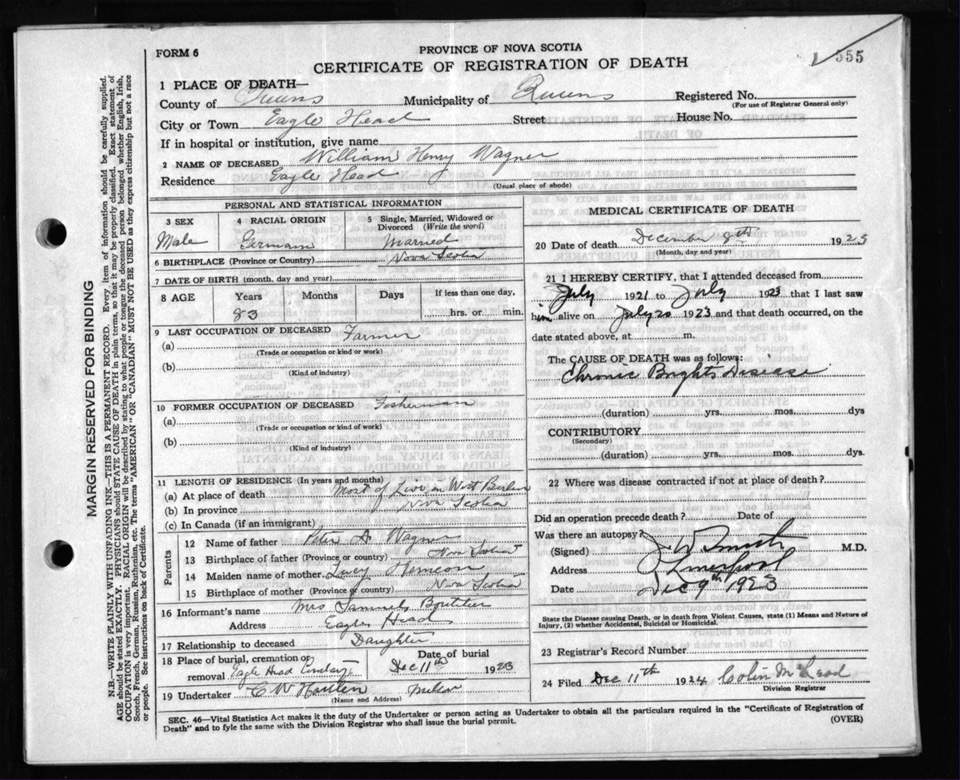 FORM 6
PROVINCE OF NOVA SCOTIA
CERTIFICATE OF REGISTRATION OF DEATH
555
1 PLACE OF DEATH—
County of Queens Municipality of Queens Registered No.
(For use of Registrar General only)
City or Town Eagle Head Street House No.
If in hospital or institution, give name
2 NAME OF DECEASED William Henry Wagner
Residence Eagle Head
(Usual place of abode)
PERSONAL AND STATISTICAL INFORMATION
3 SEX
Male
4 RACIAL ORIGIN
German
5 Single, Married, Widowed or Divorced (Write the word)
Married
6 BIRTHPLACE (Province or Country) Nova Scotia
7 DATE OF BIRTH (month, day and year)
8 AGE Years Months Days If less than one day,
83 hrs. or min.
9 LAST OCCUPATION OF DECEASED Farmer
(a)
(Trade or occupation or kind or work)
(b)
(Kind of industry)
10 FORMER OCCUPATION OF DECEASED Fisherman
(a)
(Trade or occupation or kind of work)
(b)
(Kind of industry)
11 LENGTH OF RESIDENCE (In years and months)
(a) At place of death most of Live in West Berlin
(b) In province Nova Scotia
(c) In Canada (if an immigrant)
Parents
12 Name of father Wagner
13 Birthplace of father (Province or country) Nova Scotia
14 Maiden name of mother Lucy
15 Birthplace of mother (Province or country) Nova Scotia
16 Informant's name Mrs Samuel Boutilier
Address Eagle Head
17 Relationship to deceased Daughter
18 Place of burial, cremation or removal Eagle Head Cemetary
Date of burial
Dec 11th 1923
19 Undertaker C W
(Name and Address)
MEDICAL CERTIFICATE OF DEATH
20 Date of death December 9th 1923
(Month, day and year)
21 I HEREBY CERTIFY, that I attended deceased from
July 1921 to July 1923 that I last saw
him alive on July 20 1923 and that death occurred, on the
date stated above, at m.
The CAUSE OF DEATH was as follows:
Chronic Brights Disease
(duration) yrs. mos. dys
CONTRIBUTORY
(Secondary)
(duration) yrs. mos. dys.
22 Where was disease contracted if not at place of death?
Did an operation precede death? Date of
Was there an autopsy?
(Signed) J W Smith M.D.
Address Liverpool
Date Dec 9th 1923
State the Disease causing Death, or in death from Violent Causes, state (1) Means and Nature of
Injury, (2) whether Accidental, Suicidal or Homicidal.
23 Registrar's Record Number
24 Filed Dec 11th 1924 Colin McLeod
Division Registrar
SEC. 46—Vital Statistics Act makes it the duty of the Undertaker or person acting as Undertaker to obtain all the particulars required in the "Certificate of Registration of
Death" and to fyle the same with the Division Registrar who shall issue the burial permit.
(OVER)
MARGIN RESERVED FOR BINDING
N.B.—WRITE PLAINLY WITH UNFADING INK—THIS IS A PERMANENT RECORD. Every item of information should be carefully supplied.
AGE should be stated EXACTLY. PHYSICIANS should STATE CAUSE OF DEATH in plain terms, so that it may be properly classified. Exact statement of
OCCUPATION is very important. RACIAL ORIGIN will be described by stating to what people or tongue the deceased person belonged whether English, Irish,
Scotch, French, German, Russian, Ruthenian, etc. The terms "AMERICAN" OR "CANADIAN" MUST NOT BE USED as they express citizenship but not a race
or people. See instructions on back of Certificate.